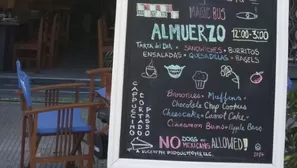 MAGIC BUS
ALMUERZO 12:00-3:00
TARTA DEL DIA • SANDWICHES • BURRITOS
ENSALADAS • QUESADILLAS • BAGELS
CAPPUCCINO
CORTADO
Brownies • Muffins
Chocolate Chip Cookies
Cheesecake • Carrot Cake
Cinnamon Buns • Apple
NO DOGS OR
MEXICANS ALLOWED!